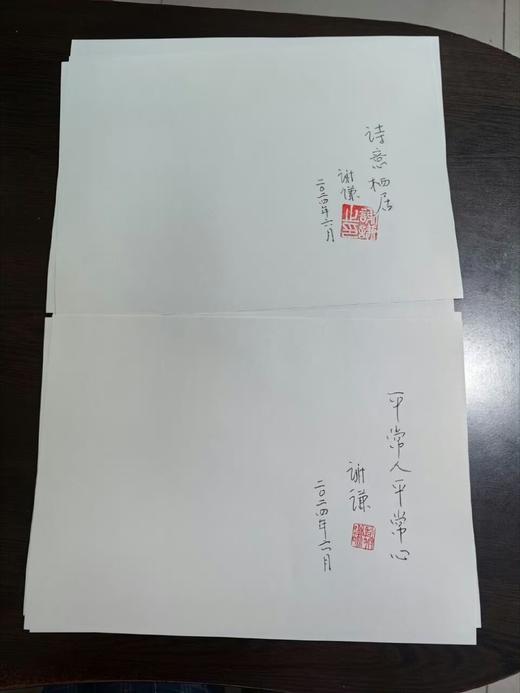 诗意栖居
谢谦
二〇二四年六月
平常人平常心
谢谦
二〇二四年六月